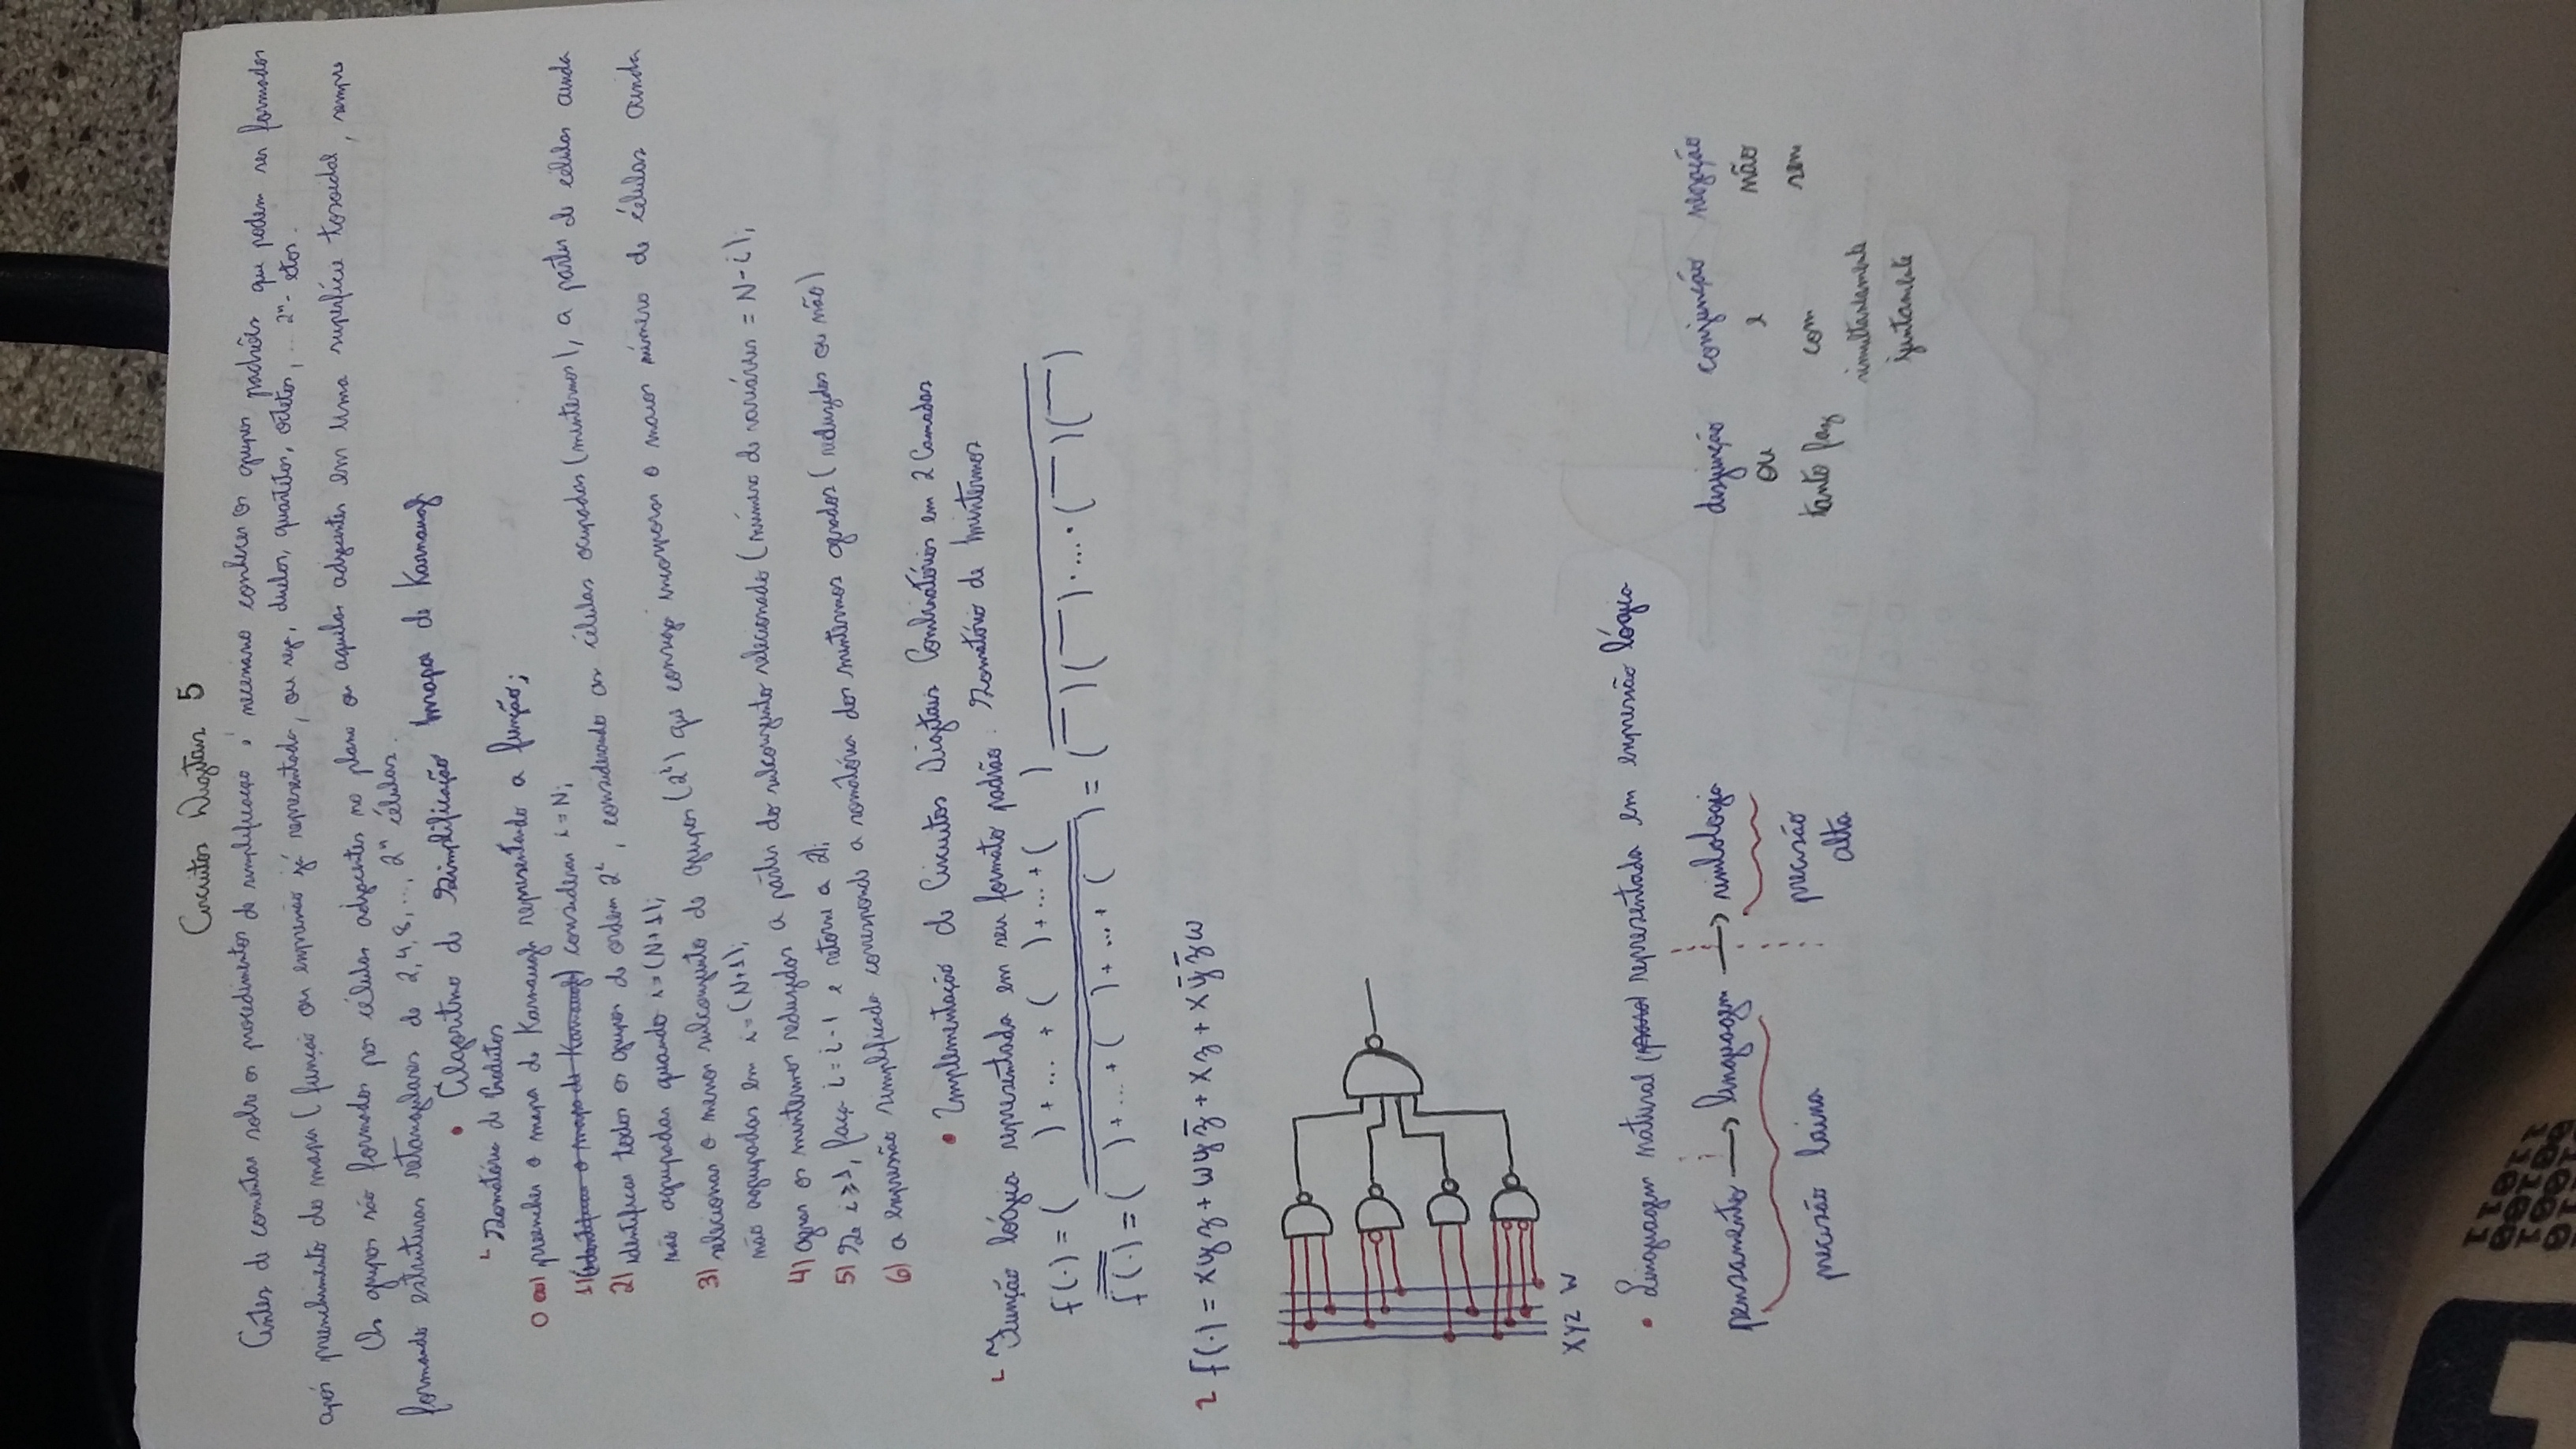 Circuitos Digitais 5
Antes de comentar sobre os procedimentos de simplificação é necessário conhecer os grupos padrões que podem ser formados
após preenchimento do mapa (função ou expressão já representada, ou seja, duetos, quartetos, octetos, ... 2ⁿ-etos.
Os grupos são formados por células adjacentes no plano ou aquelas adjacentes em uma superfície toroidal, sempre
formando estruturas retangulares de 2, 4, 8, ..., 2ⁿ células.
• Algoritmo de Simplificação Mapa de Karnaugh
Somatória de Produtos
0) preencher o mapa de Karnaugh representando a função;
1) (identificar o mapa de Karnaugh) considerar i = N;
2) identificar todos os grupos de ordem 2ⁱ, considerando as células ocupadas (mintermos), a partir de células ainda
não agrupadas quando i = (N+1);
3) selecionar o menor subconjunto de grupos (2ⁱ) que consiga incorporar o maior número de células ainda
não agrupadas em i = (N+1);
4) gerar os mintermos reduzidos a partir do subconjunto selecionado (número de variáveis = N - i);
5) Se i ≥ 1, faça i = i - 1 e retorne a 2);
6) a expressão simplificada corresponde a somatória dos mintermos gerados (reduzidos ou não)
• Implementação de Circuitos Digitais Combinatórios em 2 Camadas
Função lógica representada em seu formato padrão: Somatório de Mintermos
f(·) = ( ) + ... + ( ) + ... + ( )
f(·) = ( ) + ... + ( ) + ... + ( ) = ( ) ( ) · ... · ( ) ( )
2 f(·) = xyz + wyz̄ + xz + xȳz̄w
X Y Z W
• Linguagem natural (para) representada em expressão lógica
pensamento → linguagem → simbologia
precisão baixa
precisão
alta
disjunção conjunção negação
ou e não
tanto faz com sem
simultaneamente
juntamente
1101
0010